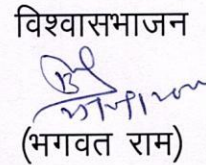 विश्वासभाजन
(भगवत राम)